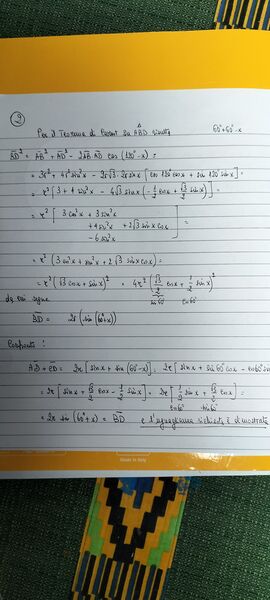 9
Per il Teorema di Carnot su ABD risulta
60°+60°-x
BD² = AB² + AD² - 2AB AD cos (120°-x) =
= 3r² + 4r² sin²x - 2r√3 · 2r sin x [cos 120° cos x + sin 120° sin x] =
= r² [3 + 4 sin²x - 4√3 sin x (-1/2 cos x + √3/2 sin x)] =
= r² [3 cos²x + 3 sin²x
+ 4 sin²x + 2√3 sin x cos x
- 6 sin²x] =
= r² (3 cos²x + sin²x + 2√3 sin x cos x) =
= r² (√3 cos x + sin x)² = 4r² (√3/2 cos x + 1/2 sin x)²
sin 60° cos 60°
da cui segue
BD = 2r (sin (60°+x))
:
AD + CD = 2r [sin x + sin (60°-x)] = 2r [sin x + sin 60° cos x - cos 60° sin
= 2r [sin x + √3/2 cos x - 1/2 sin x] = 2r [1/2 sin x + √3/2 cos x] =
cos 60° sin 60°
= 2r sin (60°+x) = BD e l'uguaglianza richiesta è dimostrata
Made in Italy